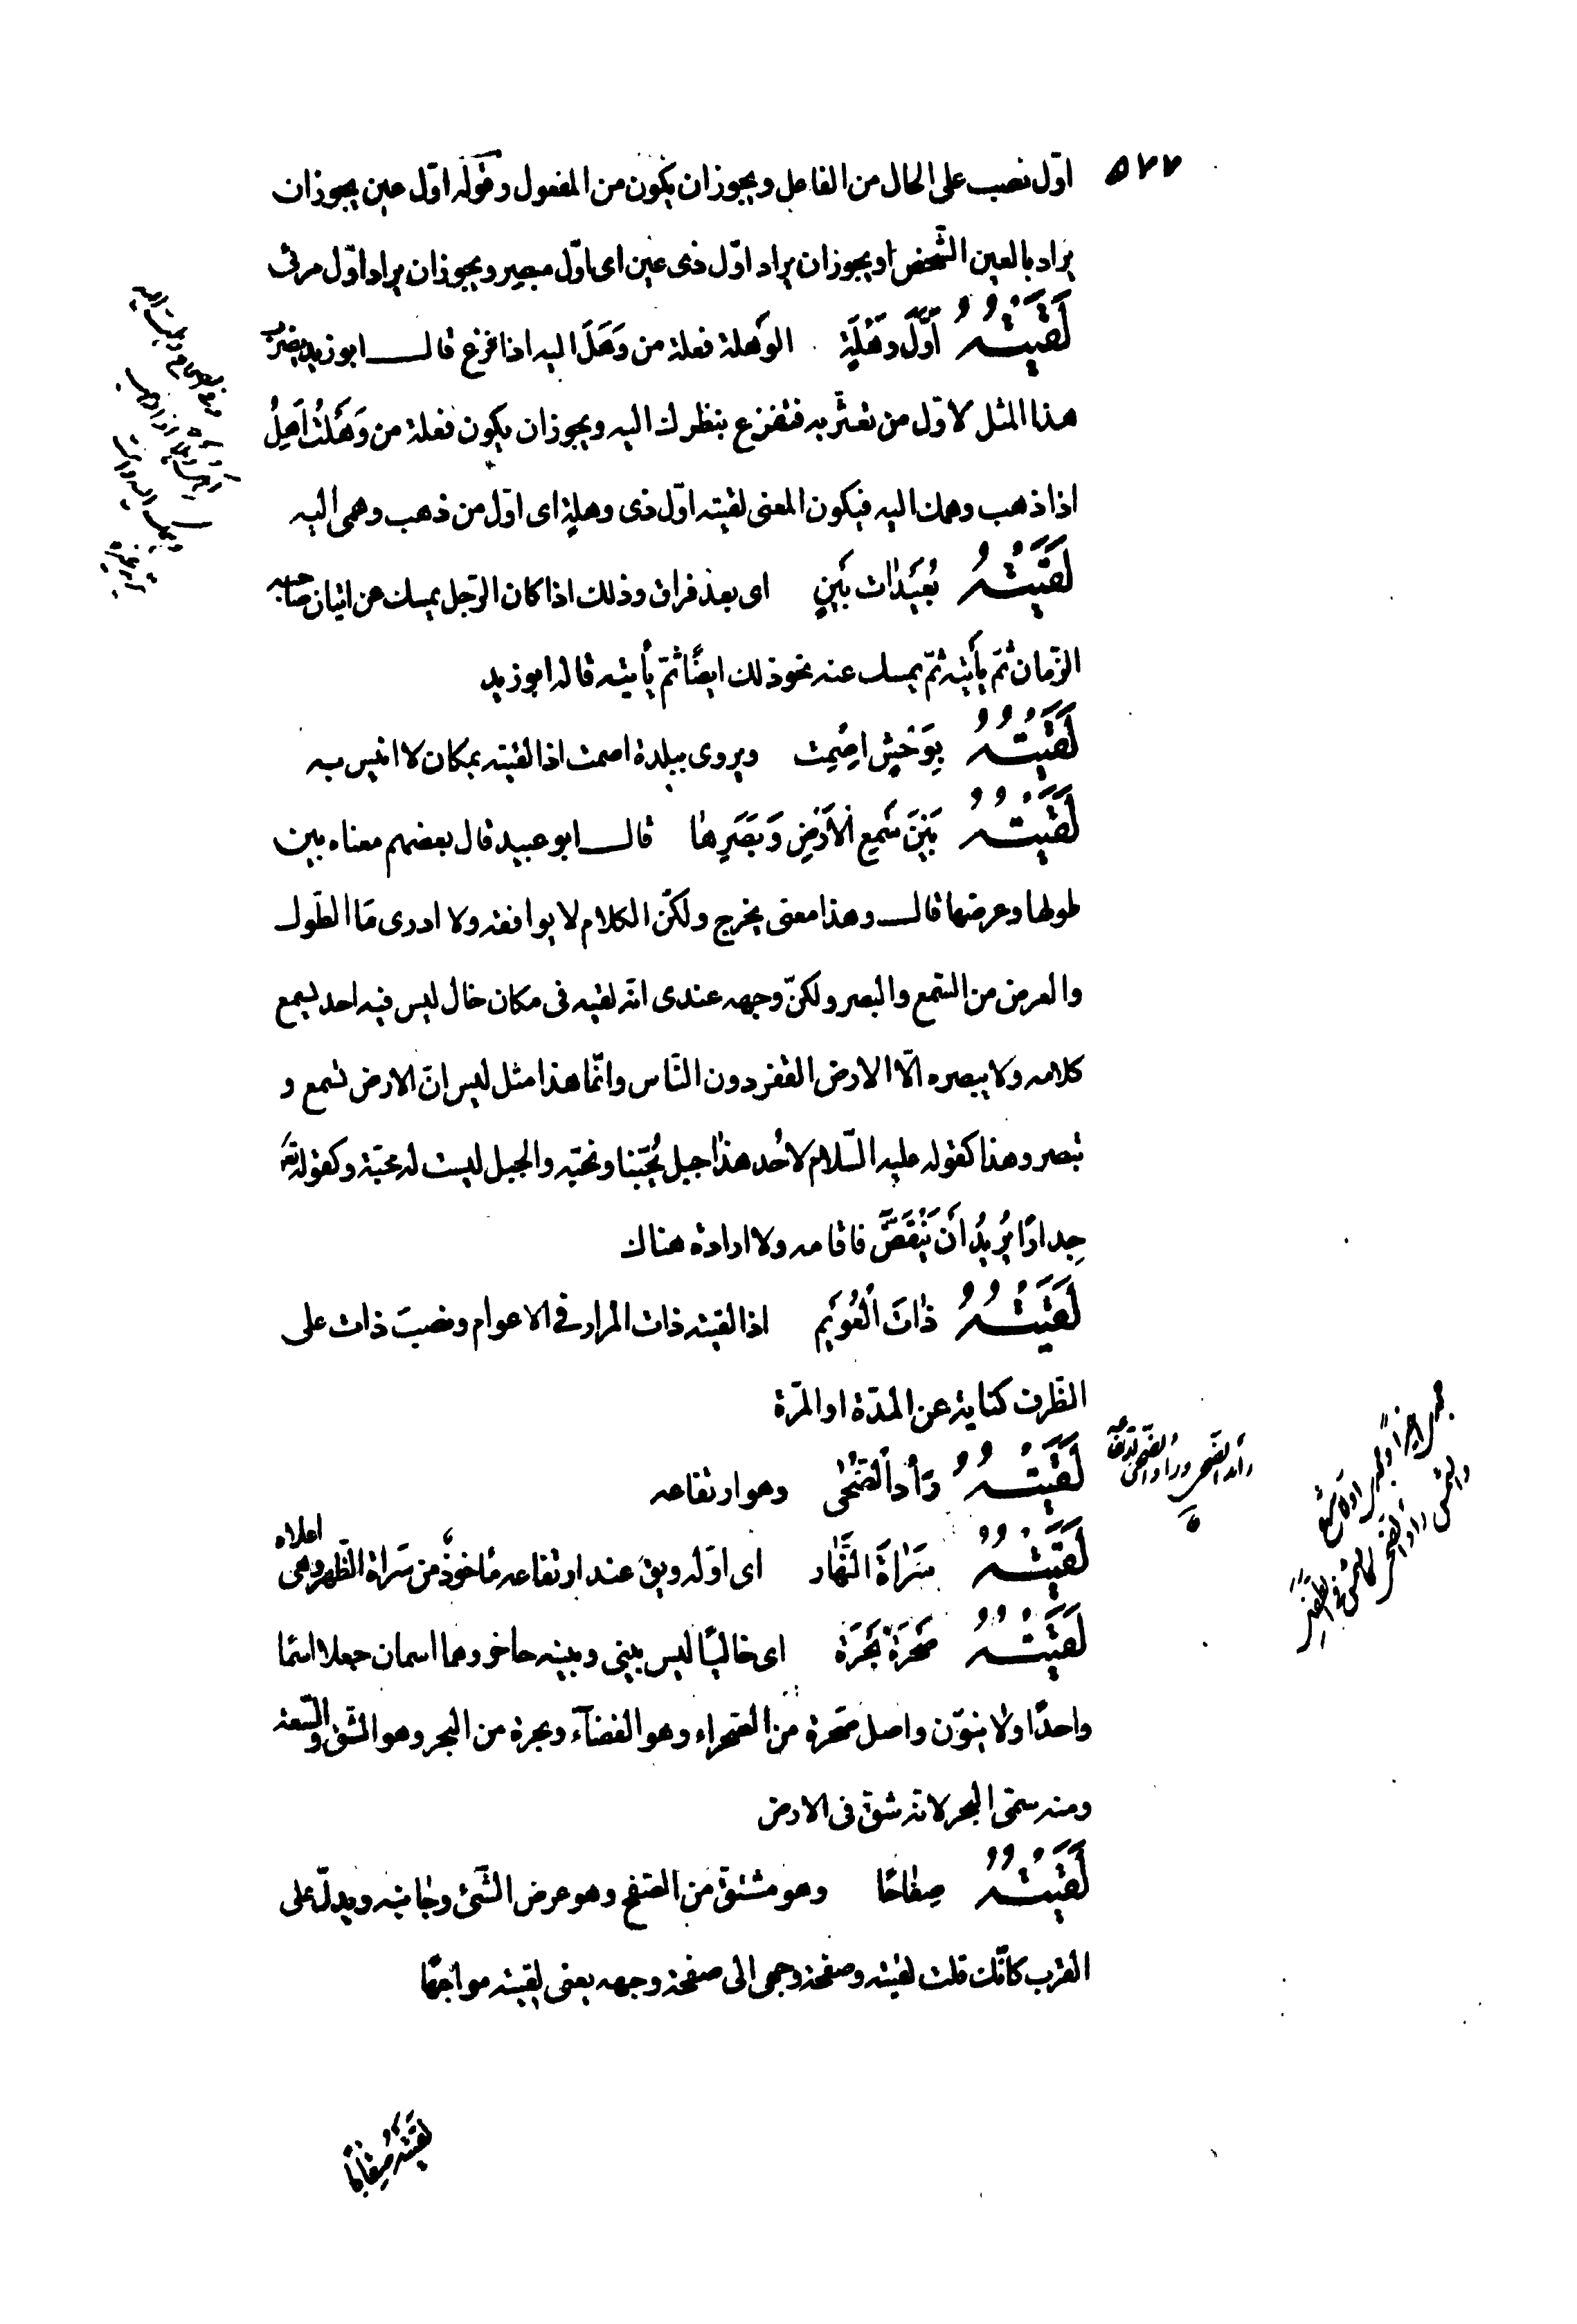 ٥٧٧
اوّل نصب على الحال من الفاعل ويجوز ان يكون من المفعول وقوله اوّل عين يجوز ان
يراد بالعين الشّخص او يجوز ان يراد اوّل ذى عين اى اوّل مبصير ويجوز ان يراد اوّل مرئى
لَقَيْتُهُ اَوَّلَ وَهْلَةٍ الوَهلة فعلة من وَهَلَ اليه اذا فزع قال ابو زيد يضرب
هذا المثل لاوّل من تعثّر به فتفزع بنظرك اليه ويجوز ان يكون فعلة من وَهَلْتُ اَهِلُ
اذا ذهب وهمك اليه فيكون المعنى لقيته اوّل ذى وهلةٍ اى اوّل من ذهب وهمى اليه
لَقَيْتُهُ بُعَيْدَات بَيْنٍ اى بعد فراق وذلك اذا كان الرّجل يمسك عن اتيان صاحبه
الزّمان ثمّ يأتيه ثمّ يمسك عنه نحو ذلك ايضًا ثمّ يأتيه قاله ابو زيد
لَقَيْتُهُ بِوَحْشٍ اِصْمِت ويروى ببلدة اصمت اذا لقيته بمكان لا انيس به
لَقَيْتُهُ بَيْنَ سَمْعِ الْاَرْضِ وَبَصَرِهَا قال ابو عبيد قال بعضهم معناه بين
طولها وعرضها قال وهذا معنى يخرج ولكنّ الكلام لا يوافقه ولا ادرى مَا الطّول
والعرض من السّمع والبصر ولكنّ وجهه عندى انّه لقيه فى مكان خال ليس فيه احد يسمع
كلامه ولا يبصره الّا الارض القفر دون النّاس وانّما هذا مثل ليس انّ الارض تسمع و
تبصر وهذا كقوله عليه السّلام لاُحد هذا جبل يُحّبنا ونحبّه والجبل ليست له محبّة وكقوله تعَ
جِدارًا يُرِيدُ اَنْ يَنْقَضَّ فاقامه ولا ارادة هناك
لَقَيْتُهُ ذَاتَ الْعُوَيْمِ اذا لقيته ذات المرار فى الاعوام ونصبَ ذات على
الظّرف كناية عن المدّة او المرّة
لَقَيْتُهُ رَأْدَ الضُّحَى وهو ارتفاعه
لَقَيْتُهُ سَرَاةَ النَّهَار اى اوّله ويق عند ارتفاعه مَاخوذ من سَراة الظّهر وهى اعلاه
لَقَيْتُهُ صَحْرَةَ بَحْرَةَ اى خاليًا ليس بينى وبينه حاجز وهما اسمان جعلا اسمًا
واحدًا ولا ينوّن واصل صحرة من الصّحراء وهو الفضآء وبحرة من البحر وهو الشّقّ والسّعة
ومنه سمّى البحر لانّه شقّ فى الارض
لَقَيْتُهُ صِفَاحًا وهو مشتق من الصّفح وهو عرض الشّئ وجَانبه ويدلّ على
القرب كانّك قلت لقيته وصفحة وجهى الى صفحة وجهه يعنى لقيته مواجهًا
لَقَيْتُهُ صِقَابًا